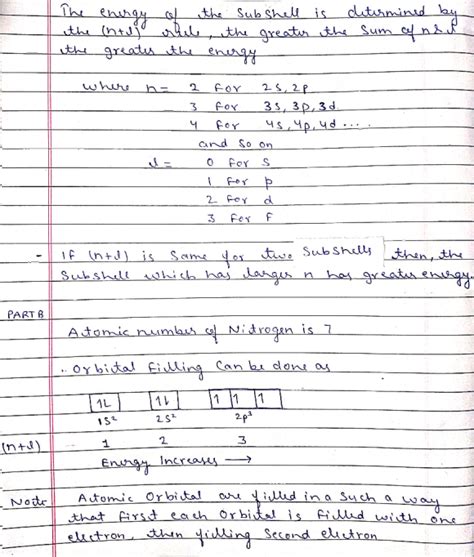 The energy of the Subshell is determined by
the (n+l) rule, the greater the Sum of n & l
the greater the energy
where n = 2 for 2s, 2p
3 for 3s, 3p, 3d
4 for 4s, 4p, 4d ....
and so on
l = 0 for s
1 for p
2 for d
3 for F
- If (n+l) is same for two Subshells then, the
Subshell which has larger n has greater energy.
PART B
Atomic number of Nitrogen is 7
. Orbital Filling can be done as
1L 1L 1 1 1
1s² 2s² 2p³
(n+l) 1 2 3
Energy Increases →
Note Atomic Orbital are filled in a such a way
that first each Orbital is filled with one
electron, then filling second electron